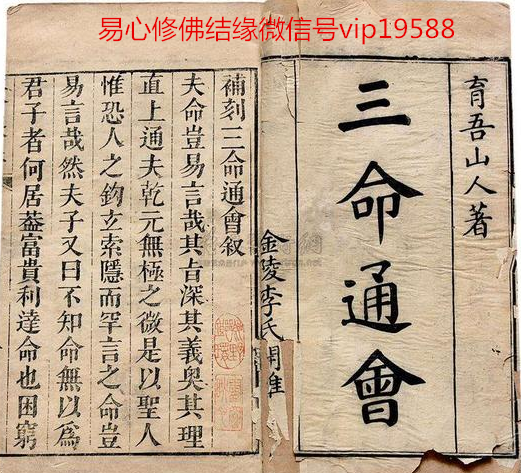 易心修佛结缘微信号vip19588
育吾山人著
三命通會
金陵李氏
補刻三命通會叙
夫命豈易言哉其旨深其義奧其理
直上通夫乾元無極之微是以聖人
惟恐人之鈎玄索隱而罕言之命豈
易言哉然夫子又曰不知命無以為
君子者何居葢富貴利達命也困窮